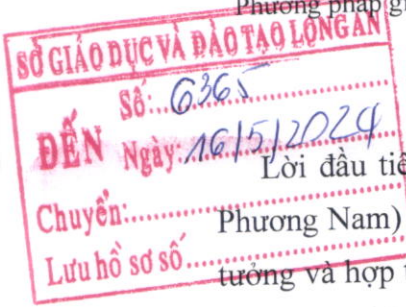 Phương pháp g
SỞ GIÁO DỤC VÀ ĐÀO TẠO LONG AN
ĐẾN
Số: 6365
Ngày: 16/5/2024
Chuyển:
Lưu hồ sơ số
Lời đầu tiê
Phương Nam)
tưởng và hợp t